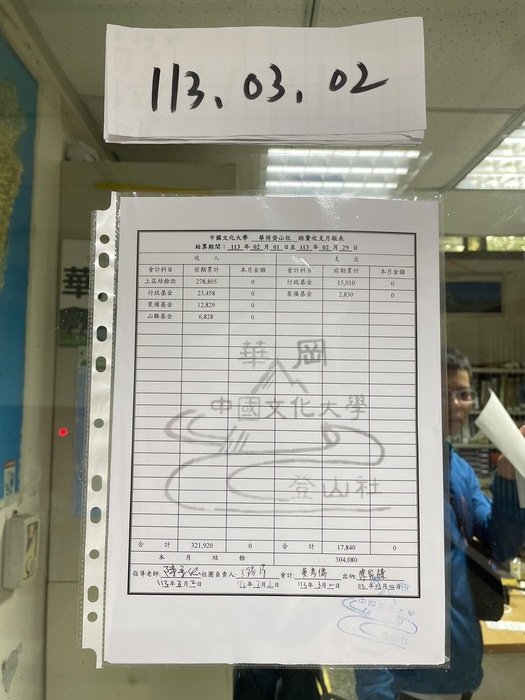 113.03.02
中國文化大學 華岡登山社 經費收支月報表
結算期間：113 年 02 月 01 日至 113 年 02 月 29 日
收 入 支 出
會計科目 前期累計 本月金額 會計科目 前期累計 本月金額
上屆結餘款 278,805 0 行政基金 15,010 0
行政基金 23,458 0 裝備基金 2,830 0
裝備基金 12,829 0
山難基金 6,828 0
華岡
中國文化大學
登山社
合 計 321,920 0 合 計 17,840 0
本 月 結 餘 304,080
指導老師: 社團負責人: 會計: 出納:
113年3月2日 113年3月2日
中國文化大學
登山社
華